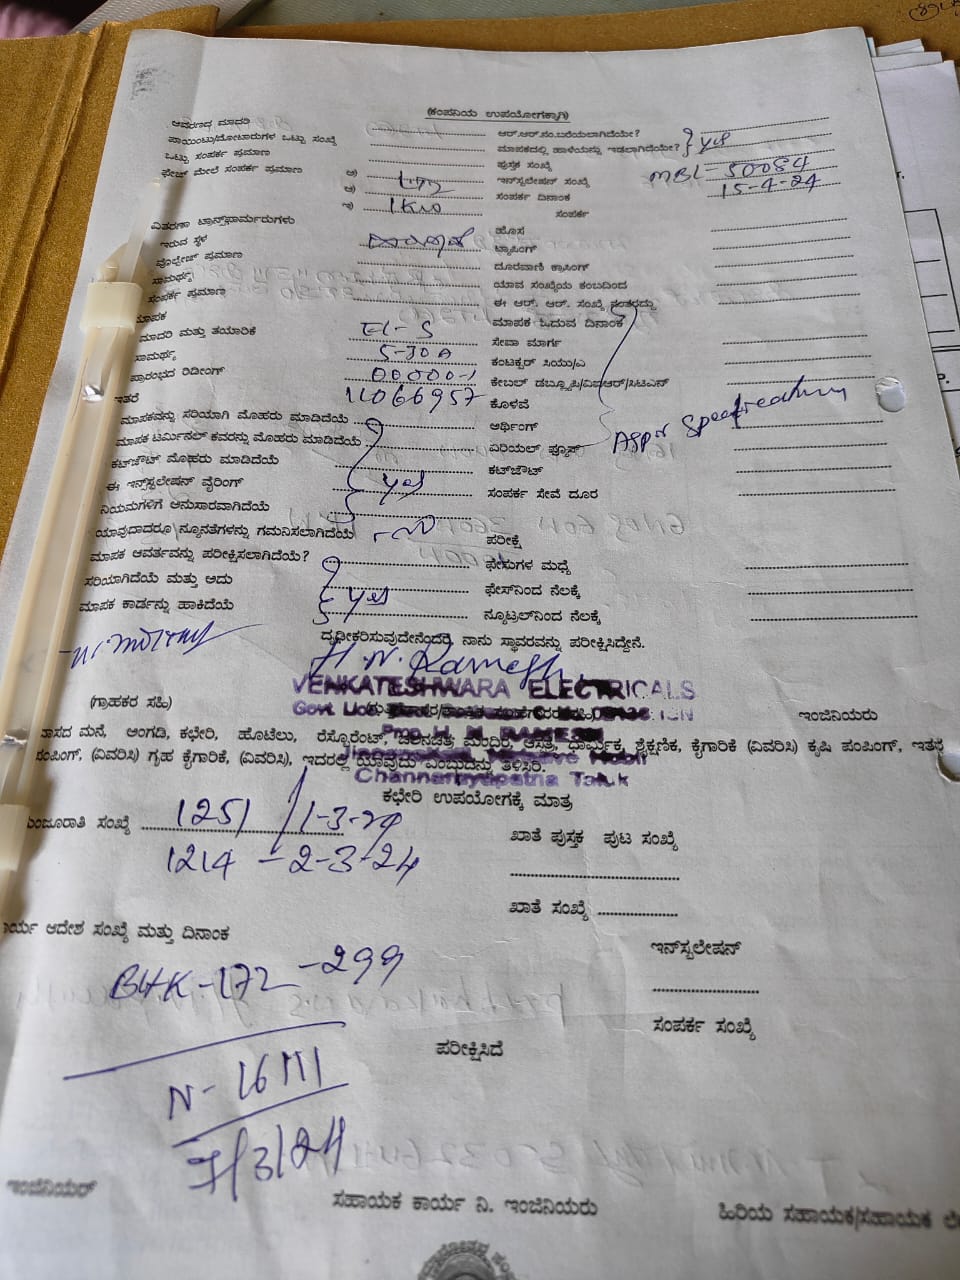 (ಕಂಪನಿಯ ಉಪಯೋಗಕ್ಕಾಗಿ)
ಆವರಣದ ಮಾದರಿ
ಪಾಯಿಂಟು/ಮೋಟಾರುಗಳ ಒಟ್ಟು ಸಂಖ್ಯೆ
ಒಟ್ಟು ಸಂಪರ್ಕ ಪ್ರಮಾಣ
ಫೇಜ್ ಮೇಲೆ ಸಂಪರ್ಕ ಪ್ರಮಾಣ
1 KW
ವಿತರಣಾ ಟ್ರಾನ್ಸ್‌ಫಾರ್ಮರುಗಳು
ಇರುವ ಸ್ಥಳ
ವೊಲ್ಟೇಜ್ ಪ್ರಮಾಣ
ಸಾಮರ್ಥ್ಯ
ಸಂಪರ್ಕ ಪ್ರಮಾಣ
ಮಾಪಕ
ಮಾದರಿ ಮತ್ತು ತಯಾರಿಕೆ EL-S
ಸಾಮರ್ಥ್ಯ 5-30 A
ಪ್ರಾರಂಭದ ರಿಡೀಂಗ್ 00000-1
ಇತರೆ 11066957
ಮಾಪಕವನ್ನು ಸರಿಯಾಗಿ ಮೊಹರು ಮಾಡಿದೆಯೆ
ಮಾಪಕ ಟರ್ಮಿನಲ್ ಕವರನ್ನು ಮೊಹರು ಮಾಡಿದೆಯೆ
ಕಟ್‌ಔಟ್ ಮೊಹರು ಮಾಡಿದೆಯೆ
ಈ ಇನ್‌ಸ್ಟಲೇಷನ್ ವೈರಿಂಗ್ yes
ನಿಯಮಗಳಿಗೆ ಅನುಸಾರವಾಗಿದೆಯೆ
ಯಾವುದಾದರೂ ನ್ಯೂನತೆಗಳನ್ನು ಗಮನಿಸಲಾಗಿದೆಯೆ
ಮಾಪಕ ಆವರ್ತವನ್ನು ಪರೀಕ್ಷಿಸಲಾಗಿದೆಯೆ?
ಸರಿಯಾಗಿದೆಯೆ ಮತ್ತು ಅದು yes
ಮಾಪಕ ಕಾರ್ಡನ್ನು ಹಾಕಿದೆಯೆ
ಆರ್.ಆರ್.ನಂ.ಬರೆಯಲಾಗಿದೆಯೇ?
ಮಾಪಕದಲ್ಲಿ ಹಾಳೆಯನ್ನು ಇಡಲಾಗಿದೆಯೇ? yes
ಪುಸ್ತಕ ಸಂಖ್ಯೆ
ಇನ್‌ಸ್ಟಲೇಷನ್ ಸಂಖ್ಯೆ MBL-50084
ಸಂಪರ್ಕ ದಿನಾಂಕ 15-4-24
ಸಂಪರ್ಕ
ಹೊಸ
ಟ್ಯಾಪಿಂಗ್
ದೂರವಾಣಿ ಕ್ರಾಸಿಂಗ್
ಯಾವ ಸಂಖ್ಯೆಯ ಕಂಬದಿಂದ
ಈ ಆರ್. ಆರ್. ಸಂಖ್ಯೆ ನಂತರದ್ದು
ಮಾಪಕ ಓದುವ ದಿನಾಂಕ
ಸೇವಾ ಮಾರ್ಗ
ಕೊಳವೆ
ಅರ್ಥಿಂಗ್
ಏರಿಯಲ್ ಫ್ಯೂಸ್
ಕಟ್‌ಔಟ್
ಸಂಪರ್ಕ ಸೇವೆ ದೂರ
ಪರೀಕ್ಷೆ
ಫೇಸುಗಳ ಮಧ್ಯೆ
ಫೇಸ್‌ನಿಂದ ನೆಲಕ್ಕೆ
ನ್ಯೂಟ್ರಲ್‌ನಿಂದ ನೆಲಕ್ಕೆ
ದೃಢೀಕರಿಸುವುದೇನೆಂದರೆ, ನಾನು ಸ್ಥಾವರವನ್ನು ಪರೀಕ್ಷಿಸಿದ್ದೇನೆ.
H.N. Ramesh
VENKATESHWARA ELECTRICALS
(ಗ್ರಾಹಕರ ಸಹಿ)
ಇಂಜಿನಿಯರು
ವಾಸದ ಮನೆ, ಅಂಗಡಿ, ಕಛೇರಿ, ಹೊಟೇಲು, ರೆಸ್ಟೊರೆಂಟ್, ಚಲನಚಿತ್ರ ಮಂದಿರ, ಆಸ್ಪತ್ರೆ, ಧಾರ್ಮಿಕ, ಶೈಕ್ಷಣಿಕ, ಕೈಗಾರಿಕೆ (ವಿವರಿಸಿ) ಕೃಷಿ ಪಂಪಿಂಗ್, ಇತರೆ
ಪಂಪಿಂಗ್, (ವಿವರಿಸಿ) ಗೃಹ ಕೈಗಾರಿಕೆ, (ವಿವರಿಸಿ), ಇದರಲ್ಲಿ ಯಾವುದು ಎಂಬುದನ್ನು ತಿಳಿಸಿರಿ.
Channarayapatna Taluk
ಕಛೇರಿ ಉಪಯೋಗಕ್ಕೆ ಮಾತ್ರ
ಮಂಜೂರಾತಿ ಸಂಖ್ಯೆ 1251 / 1-3-24
1214 - 2-3-24
ಖಾತೆ ಪುಸ್ತಕ ಪುಟ ಸಂಖ್ಯೆ
ಖಾತೆ ಸಂಖ್ಯೆ
ಕಾರ್ಯ ಆದೇಶ ಸಂಖ್ಯೆ ಮತ್ತು ದಿನಾಂಕ
ಇನ್‌ಸ್ಟಲೇಷನ್
BHK-172-299
ಸಂಪರ್ಕ ಸಂಖ್ಯೆ
ಪರೀಕ್ಷಿಸಿದೆ
7/3/24
ಇಂಜಿನಿಯರ್
ಸಹಾಯಕ ಕಾರ್ಯ ನಿ. ಇಂಜಿನಿಯರು
ಹಿರಿಯ ಸಹಾಯಕ/ಸಹಾಯಕ